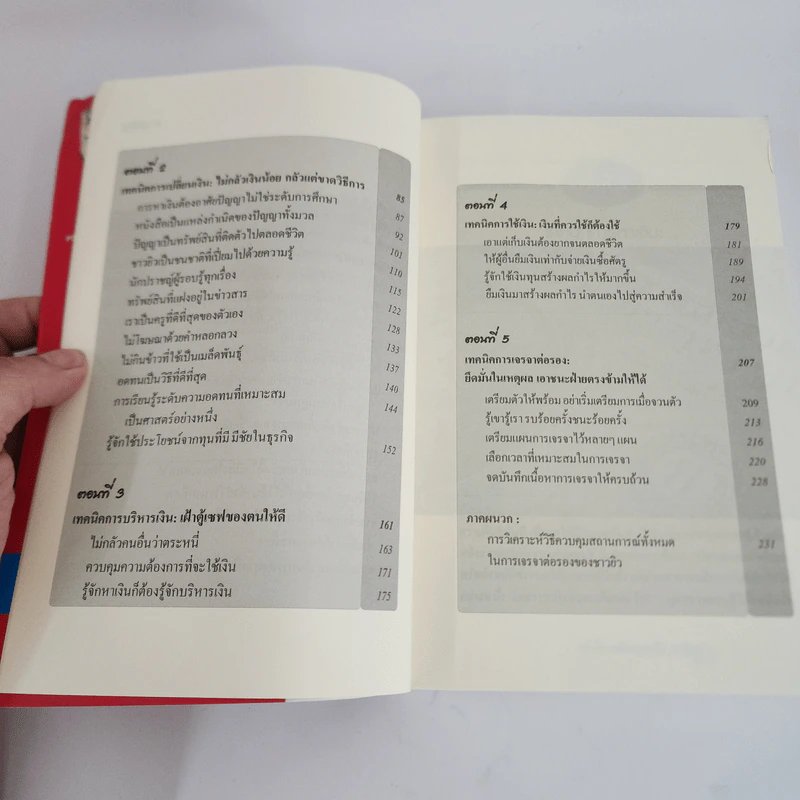 ตอนที่ 2
เทคนิคการเปลี่ยนเงิน: ไม่กลัวเงินน้อย กลัวแต่ขาดวิธีการ 85
การหาเงินต้องอาศัยปัญญาไม่ใช่ระดับการศึกษา 87
หนังสือเป็นแหล่งกำเนิดของปัญญาทั้งมวล 92
ปัญญาเป็นทรัพย์สินที่ติดตัวไปตลอดชีวิต 101
ชาวยิวเป็นชนชาติที่เปี่ยมไปด้วยความรู้ 110
นักปราชญ์ผู้รอบรู้ทุกเรื่อง 115
ทรัพย์สินที่แฝงอยู่ในข่าวสาร 122
เราเป็นครูที่ดีที่สุดของตัวเอง 128
ไม่โฆษณาด้วยคำหลอกลวง 133
ไม่กินข้าวที่ใช้เป็นเมล็ดพันธุ์ 137
อดทนเป็นวิธีที่ดีที่สุด 140
การเรียนรู้ระดับความอดทนที่เหมาะสม 144
เป็นศาสตร์อย่างหนึ่ง
รู้จักใช้ประโยชน์จากทุนที่มี มีชัยในธุรกิจ 152
ตอนที่ 3
เทคนิคการบริหารเงิน: เฝ้าตู้เซฟของตนให้ดี 161
ไม่กลัวคนอื่นว่าตระหนี่ 163
ควบคุมความต้องการที่จะใช้เงิน 171
รู้จักหาเงินก็ต้องรู้จักบริหารเงิน 175
ตอนที่ 4
เทคนิคการใช้เงิน: เงินที่ควรใช้ก็ต้องใช้ 179
เอาแต่เก็บเงินต้องยากจนตลอดชีวิต 181
ให้ผู้อื่นยืมเงินเท่ากับจ่ายเงินซื้อศัตรู 189
รู้จักใช้เงินทุนสร้างผลกำไรให้มากขึ้น 194
ยืมเงินมาสร้างผลกำไร นำตนเองไปสู่ความสำเร็จ 201
ตอนที่ 5
เทคนิคการเจรจาต่อรอง: 207
ยึดมั่นในเหตุผล เอาชนะฝ่ายตรงข้ามให้ได้
เตรียมตัวให้พร้อม อย่าเริ่มเตรียมการเมื่อจวนตัว 209
รู้เขารู้เรา รบร้อยครั้งชนะร้อยครั้ง 213
เตรียมแผนการเจรจาไว้หลายๆ แผน 216
เลือกเวลาที่เหมาะสมในการเจรจา 220
จดบันทึกเนื้อหาการเจรจาให้ครบถ้วน 228
ภาคผนวก :
การวิเคราะห์วิธีควบคุมสถานการณ์ทั้งหมด 231
ในการเจรจาต่อรองของชาวยิว